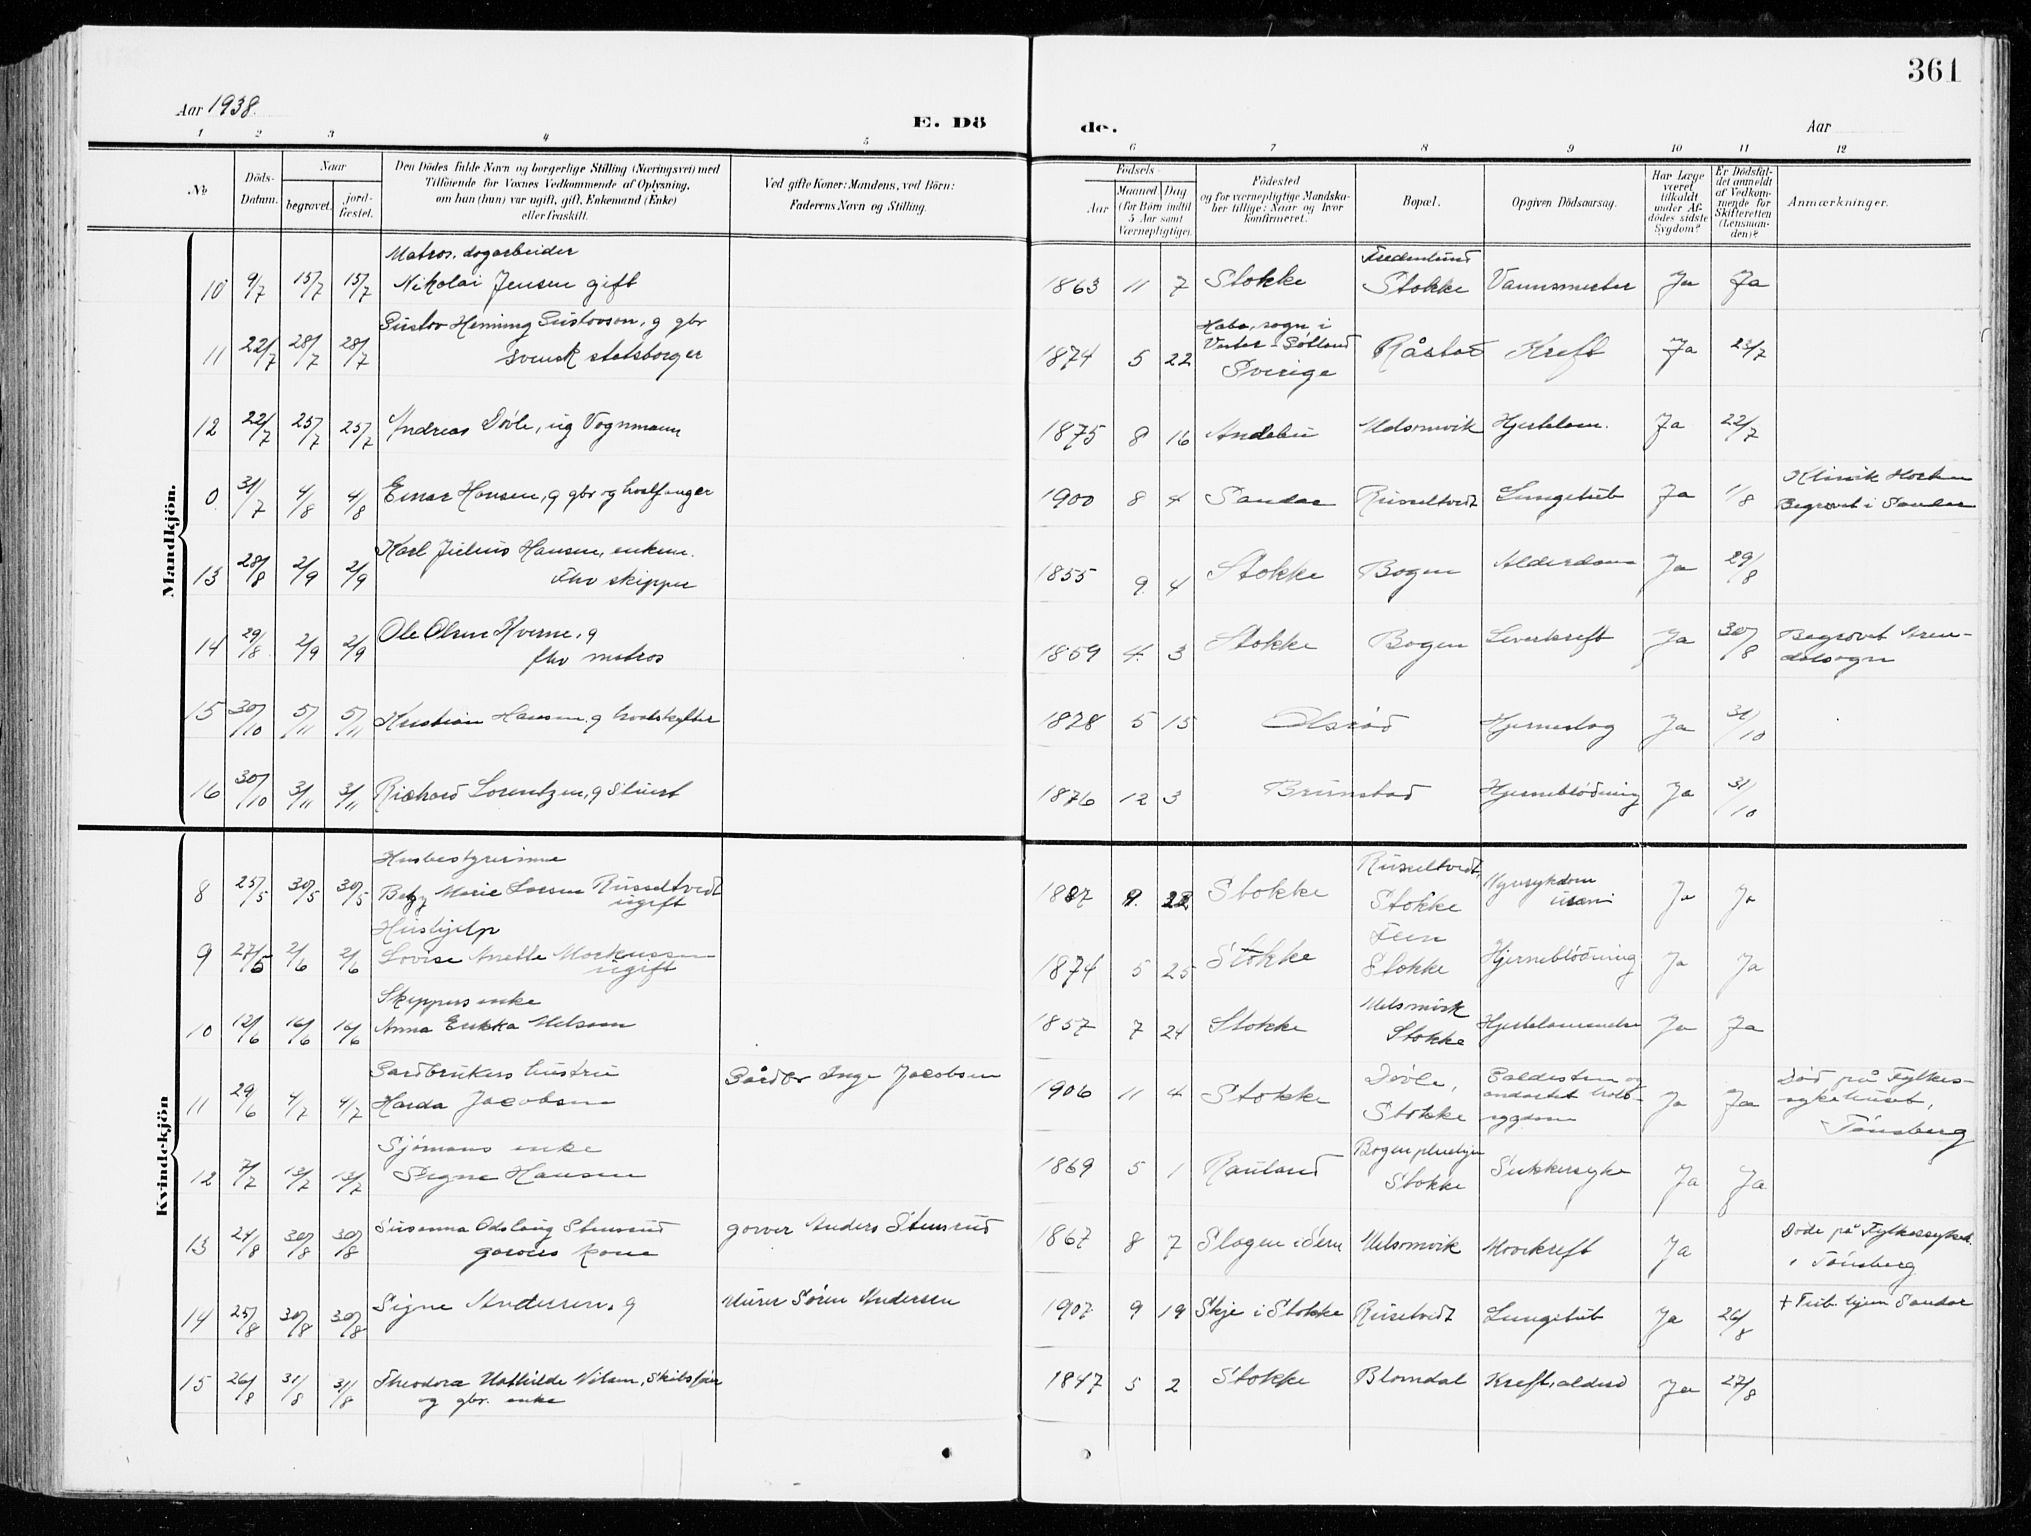 361
Aar 1938.
E. Dö
de.
Aar
1 2 3 4 5 6 7 8 9 10 11 12
No
Döds-Datum.
Naar
begravet.
jordfæstet.
Den Dödes fulde Navn og borgerlige Stilling (Næringsvei) med
Tilföiende for Voxnes Vedkommende af Oplysning,
om han (hun) var ugift, gift, Enkemand (Enke)
eller fraskilt.
Ved gifte Koner: Mandens, ved Börn:
Faderens Navn og Stilling.
Födsels-
Aar
Maaned Dag
(for Börn indtil
5 Aar samt
Værnepligtige).
Födested
og for værnepligtige Mandskaber tillige: Naar og hvor
konfirmeret.
Bopæl.
Opgiven Dödsaarsag.
Har Læge
været
tilkaldt
under Afdödes sidste
Sygdom?
Er Dödsfaldet anmeldt
af Vedkommende for
Skifteretten
(Lensmanden)?
Anmærkninger.
Mandkjön.
Matros, dogarbeider Fredenlund
10 9/7 15/7 15/7 Nikolai Jensen gift 1863 11 7 Stokke Stokke Ja Ja
Gustav Henning Gustavson, g gbr sogn i
11 22/7 28/7 28/7 svensk statsborger 1874 5 22 Vester-Götland Råstad Kreft Ja 23/7
Sverige
12 22/7 25/7 25/7 Andreas Døvle, ug Vognmann 1875 8 16 Andebu Melsomvik Hjertelam. Ja 22/7
0 31/7 4/8 4/8 Einar Hansen, g gbr og hvalfanger 1900 8 4 Sandar Russeltvedt Lungetub Ja 1/8 Klinik
Begravet i Sandar
13 28/8 2/9 2/9 Karl Julius Hansen, enkem. 1855 9 4 Stokke Bogen Alderdom Ja 29/8
Fhv skipper
14 29/8 2/9 2/9 Ole Olsen Kverne, g 1859 4 3 Stokke Bogen Leverkreft Ja 30/8 Begravet Aren-
fhv matros dalsogn
15 30/10 5/11 5/11 Kristian Hansen, g hvalskytter 1878 5 15 Olsrød Hjerneslag Ja 31/10
16 30/10 3/11 3/11 Richard Lorentzen, g Stuert 1876 12 3 Brunstad Hjerneblødning Ja 31/10
Kvindekjön
Husbestyrerinne Russeltvedt,
8 25/5 30/5 30/5 Betzy Marie Larsen Russeltvedt 1887 9. 22 Stokke Stokke Nyresykdom Ja Ja
ugift uræmi
Hushjelp Feen
9 27/5 2/6 2/6 Lovise Anette Markussen 1874 5 25 Stokke Stokke Hjerneblødning Ja Ja
ugift
Skippers enke Melsomvik
10 12/6 16/6 16/6 Anna Erikka Melsom 1857 7 24 Stokke Stokke Hjertelammelse Ja Ja
Gardbrukers hustru Gårdbr Inge Jacobsen Døvle, Galdesten og Død på Fylkes-
11 29/6 4/7 4/7 Harda Jacobsen 1906 11 4 Stokke Stokke Ja Ja sykehuset,
Tönsberg
Sjømans enke Bogen pleiehjem
12 7/7 13/7 13/7 Signe Hansen 1869 5 1 Rauland Stokke Sukkersyke Ja Ja
13 24/8 30/8 30/8 Susanna Odslaug Stensrud garver Anders Stensrud 1867 8 7 Slagen i Sem Melsomvik Mavekreft Ja Døde på Fylkessykeh.
garvers kone i Tönsberg
14 25/8 30/8 30/8 Signe Andersen, g Murer Søren Andersen 1907 9 19 Skje i Stokke Russeltvedt Lungetub Ja 26/8 + Tub. hjem Sandar
15 26/8 31/8 31/8 Theodora Mathilde Nilsen, Skibsfører 1847 5 2 Stokke Blomdal Kreft, alderd Ja 27/8
og gbr. enke